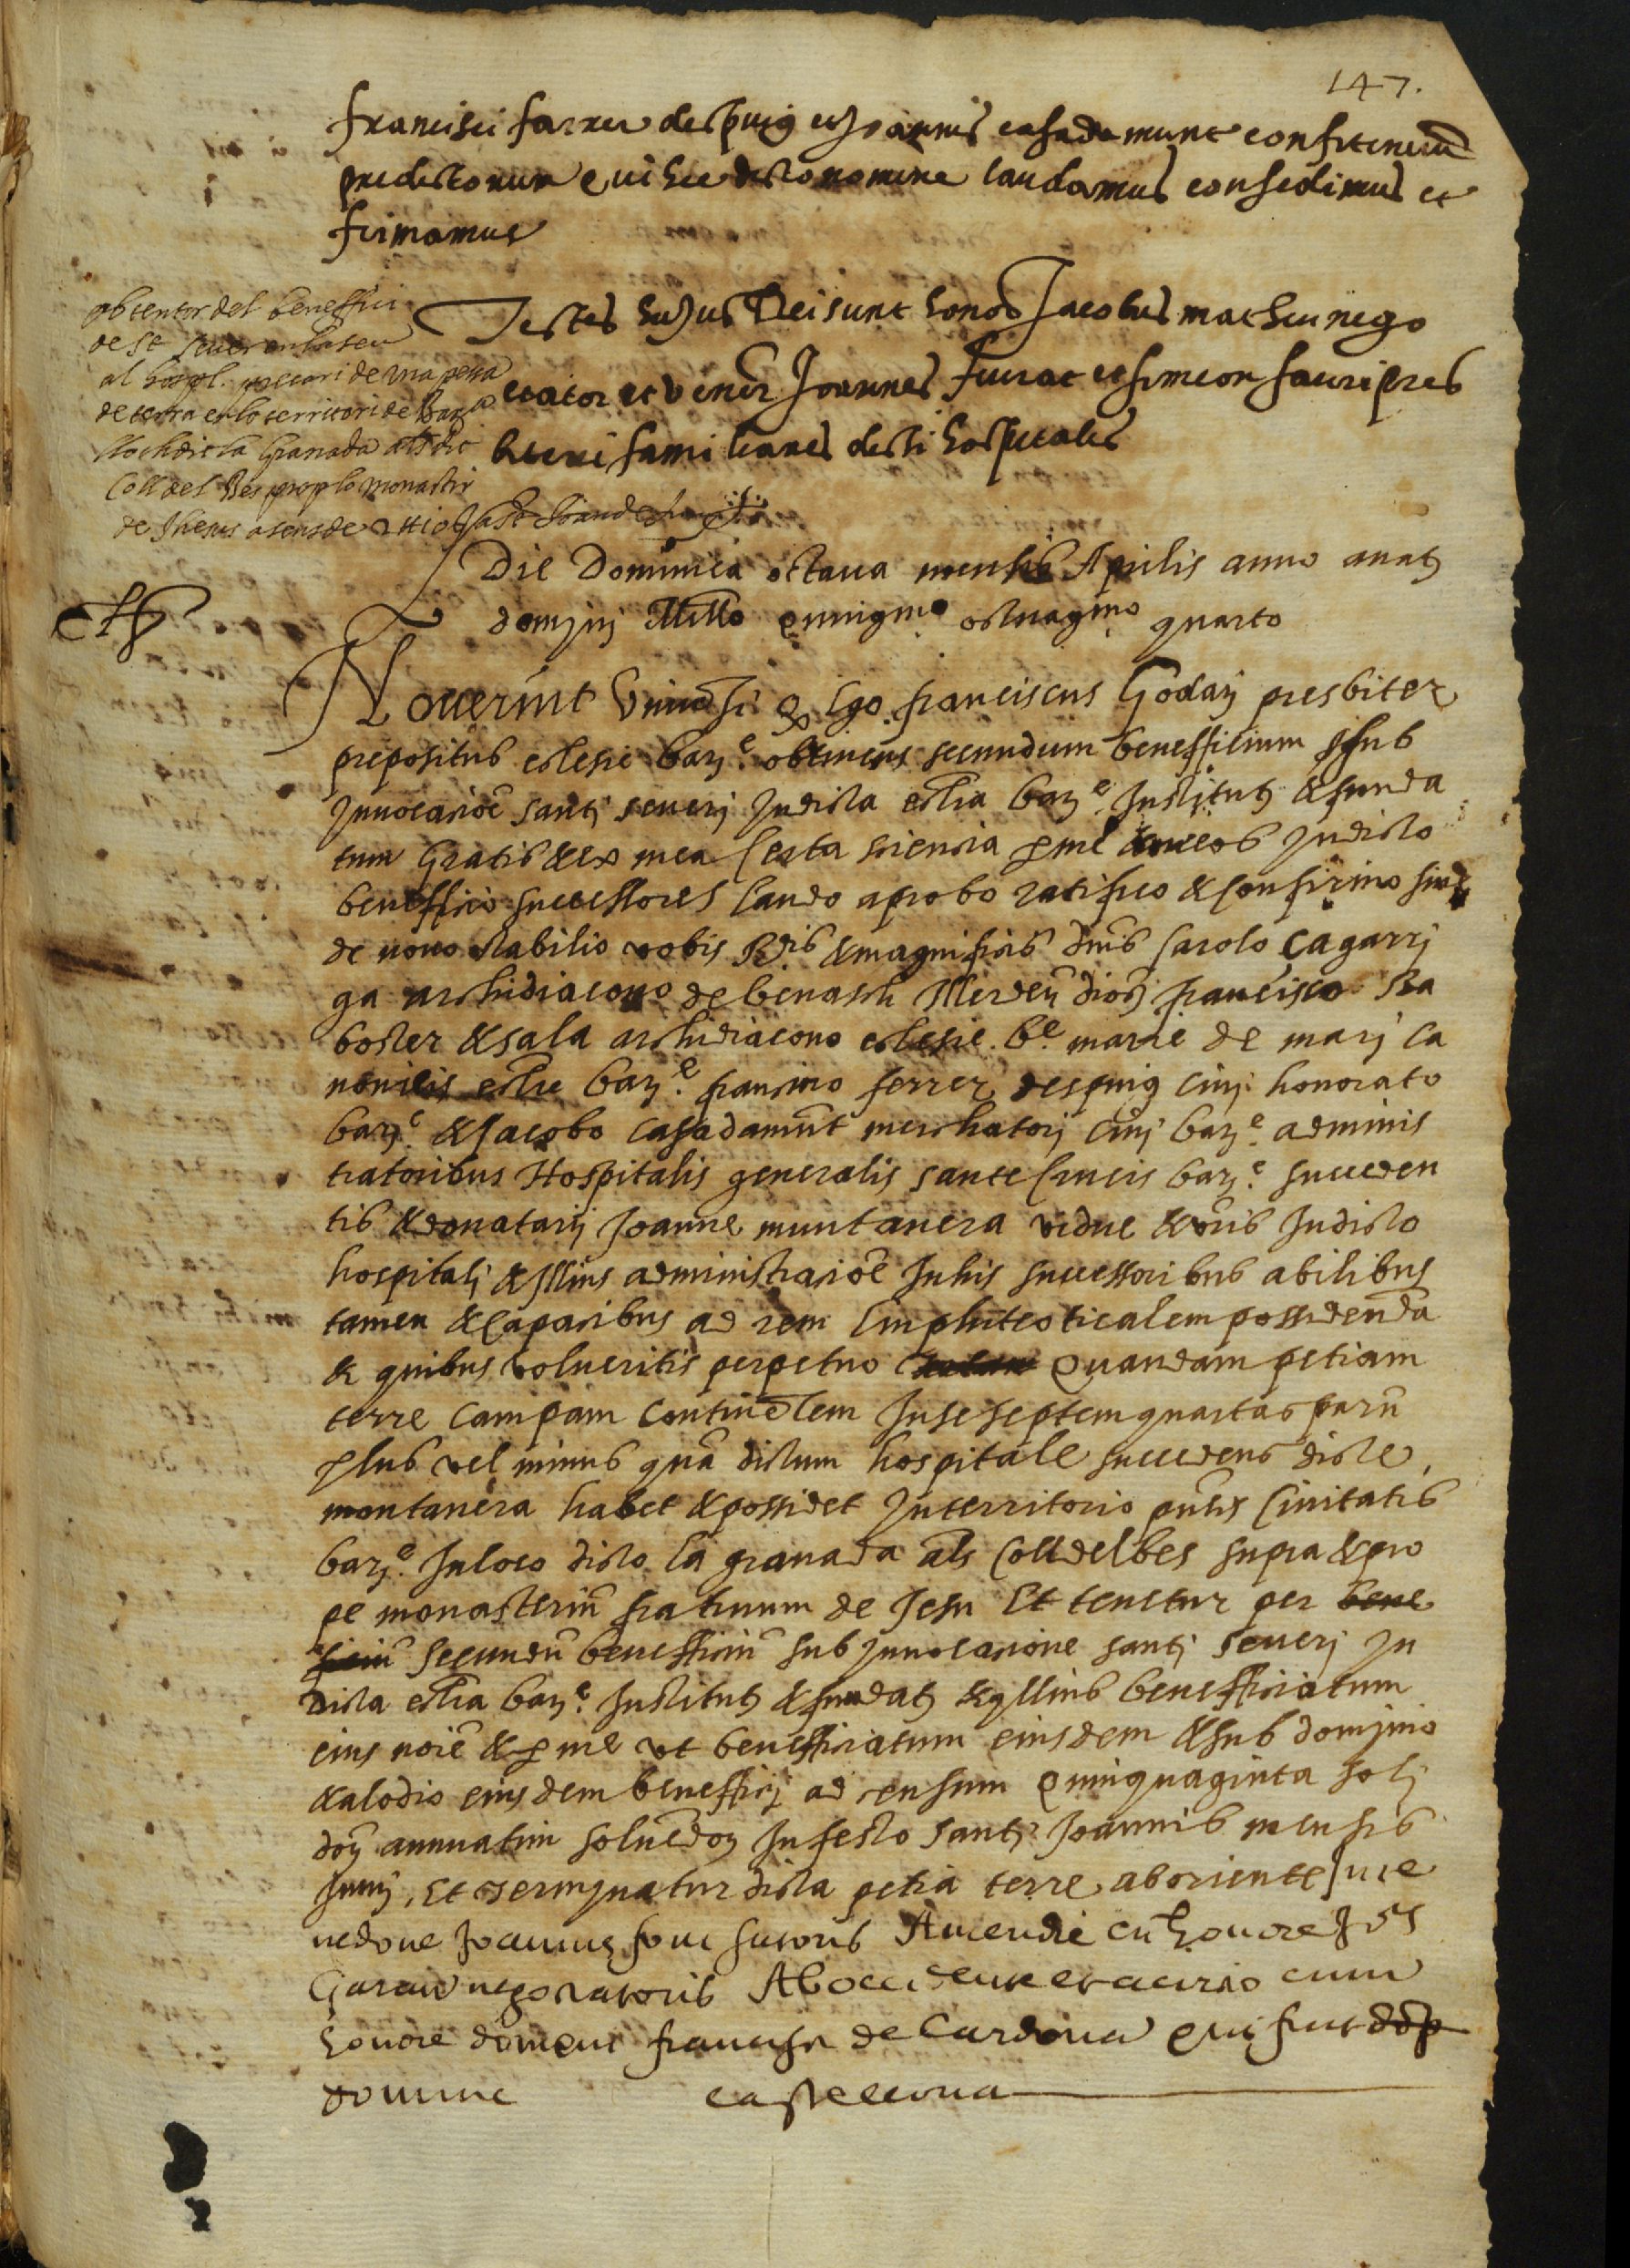 147.
francisci farrer despuig et Joannis casadamunt confitentiu
predictorum qui hec dicto nomine laudamus consedimus et
firmamus
Testes hujus Rei sunt honor Jacobus matheu nego
ciator et vener Joannes furat et simeon fauri pres
biteri familiares dicti hospitalis
obtentor del beneffici
de St sever en la seu
al hospl. de una pessa
de terra en lo territori de Barna
lloch dit la Granada als dit
Coll del Bes prop lo monastir
de Jhesus a sens de
Die Dominica octava mensis Aprilis anno a natj
domjni Millo quingmo octuagmo quarto
Noverint Universi q Ego franciscus Godaij presbiter
prepositus eclesie barne obtinens secundum beneffitium sub
Jnvocatioe santj severj Jn dicta eclia barne Jnstitutj & funda
tum Gratis & ex mea Certa siencia p me & meos Jn dicto
beneffitio successores laudo aprobo ratifico & confirmo sive
de novo stabilio vobis Rdis & magnificis dnis Carolo çagarri
ga archidiacono de benasch Illerden dios francisco Ra
boster & sala archidiacono eclesie be marie de marj ca
nonicis eclie barne francisco ferrer despuig civj honorato
barne & Jacobo casadamunt merchatorj civj barne adminis
tratoribus Hospitalis generalis sante Crucis barne succeden
tis & donatarij Joanne muntanera vidue & vris Jn dicto
hospitalj & Jllius administratioe Juhis successoribus abilibus
tamen & Capasibus ad rem Emphiteoticalem possidenda
& quibus volueritis perpetuo Quandam petiam
terre campam continetem Jn se septem quartas paru
plus vel minus qua dictum hospitale succedens dicte
montanera habet & possidet Jn territorio pntis Civitatis
barne Jn loco dicto la granada als Coll del bes supra & pro
pe monasteriu fratruum de Jesu Et tenetur per bene
ficiu secundu beneffitiu sub Jnvocasione santj severj Jn
dicta eclia barne Jnstitutj & fundatj & Jllius beneffisiatum
eius noie & p me ut beneffisiatum eiusdem & sub domjnio
& alodio eiusdem beneffisj ad sensum quinquaginta solj
doij annuatim solvedoij Jn festo santj Joannis mensis
Junij, Et termjnatur dicta petia terre ab oriente Jn te
nedone Joannis font sutoris A meridie cu honore Jois
Garau negociatoris Ab occidente et a circio cum
honore domine francise de Cardona qui fuit
domine castellona